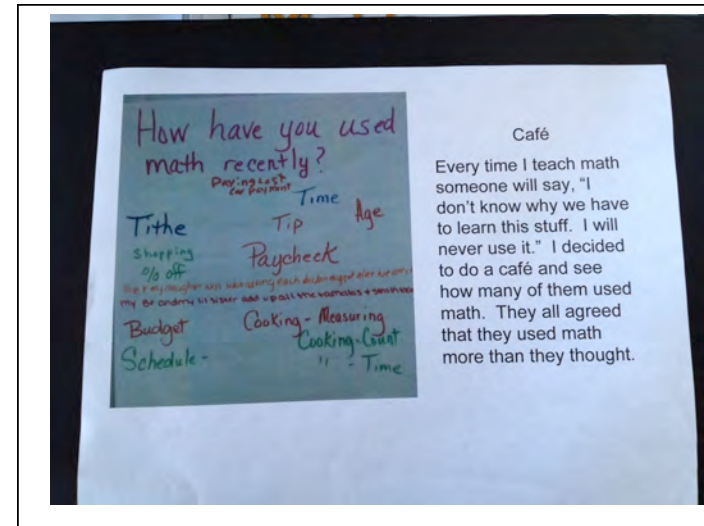 How have you used
math recently?
Paying Last
Car payment
Time
Tithe
Tip
Age
Shopping
% off
Paycheck
my daughter
my sister add up all the
Budget
Cooking - Measuring
Schedule -
Cooking - Count
" - Time
Café
Every time I teach math
someone will say, “I
don’t know why we have
to learn this stuff. I will
never use it.” I decided
to do a café and see
how many of them used
math. They all agreed
that they used math
more than they thought.